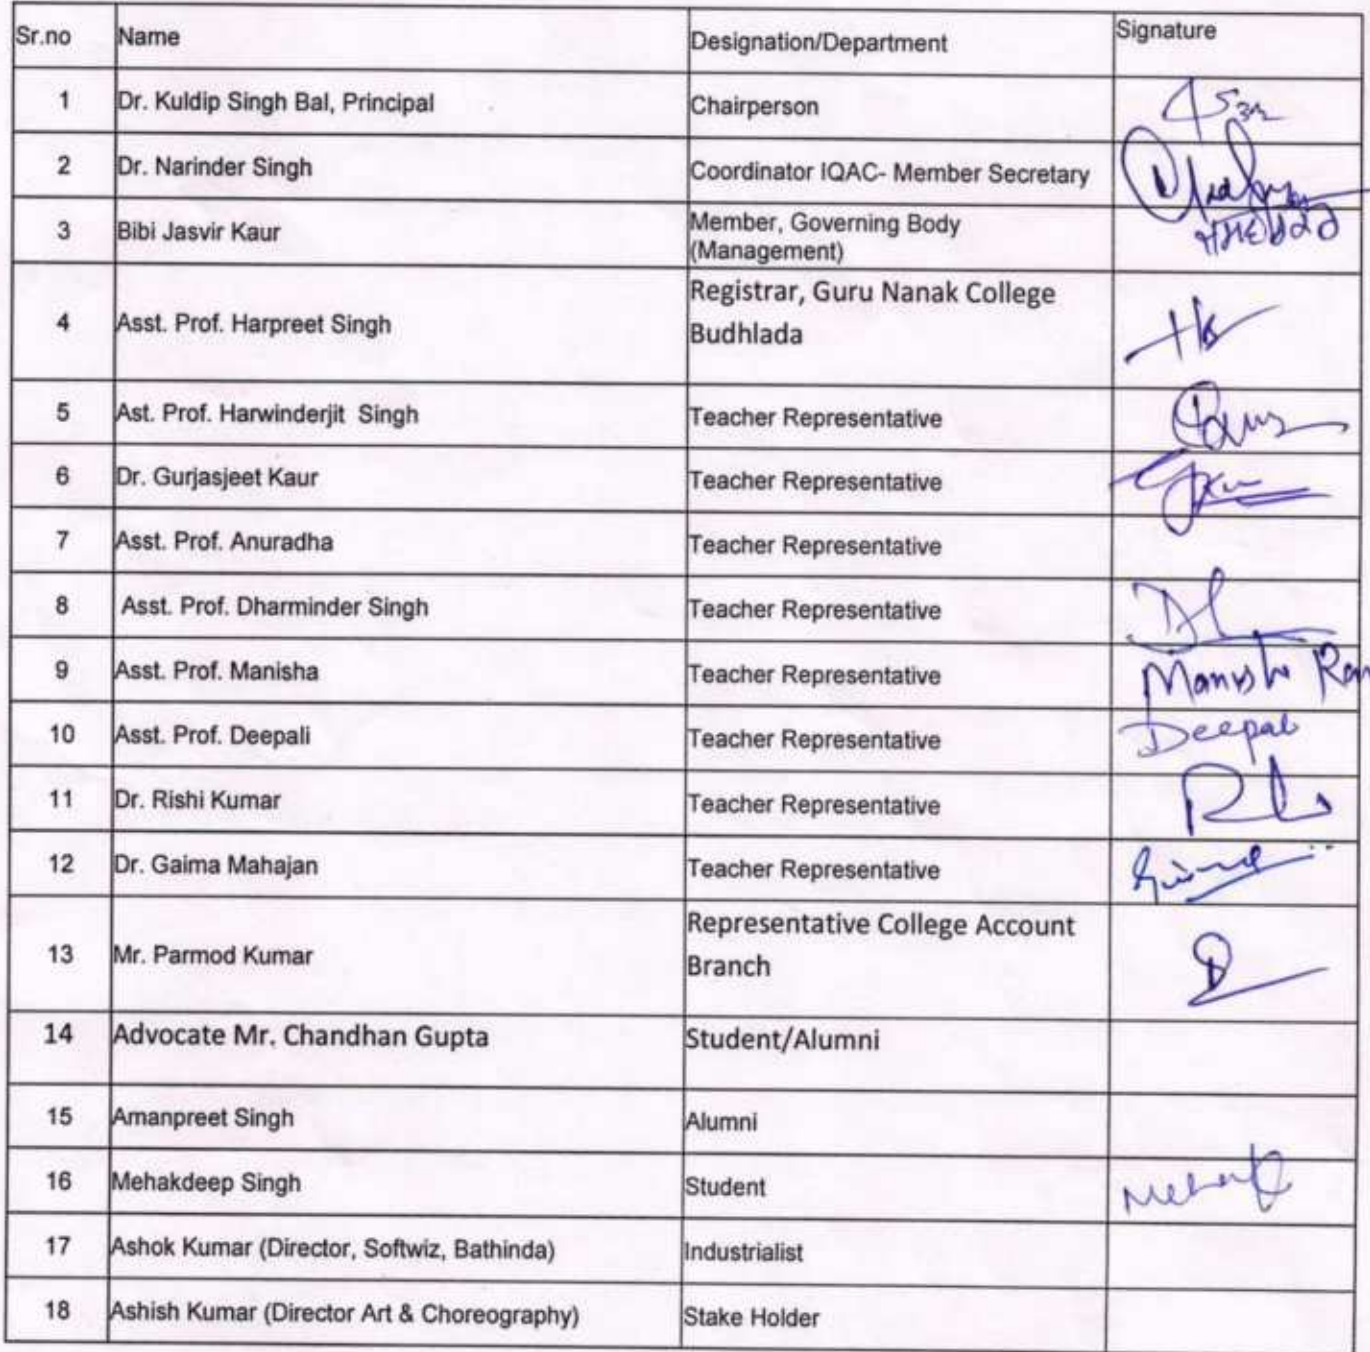 Sr.no Name Designation/Department Signature
1 Dr. Kuldip Singh Bal, Principal Chairperson
2 Dr. Narinder Singh Coordinator IQAC- Member Secretary
3 Bibi Jasvir Kaur Member, Governing Body
(Management)
4 Asst. Prof. Harpreet Singh Registrar, Guru Nanak College
Budhlada
5 Ast. Prof. Harwinderjit Singh Teacher Representative
6 Dr. Gurjasjeet Kaur Teacher Representative
7 Asst. Prof. Anuradha Teacher Representative
8 Asst. Prof. Dharminder Singh Teacher Representative
9 Asst. Prof. Manisha Teacher Representative
10 Asst. Prof. Deepali Teacher Representative
11 Dr. Rishi Kumar Teacher Representative
12 Dr. Gaima Mahajan Teacher Representative
13 Mr. Parmod Kumar Representative College Account
Branch
14 Advocate Mr. Chandhan Gupta Student/Alumni
15 Amanpreet Singh Alumni
16 Mehakdeep Singh Student
17 Ashok Kumar (Director, Softwiz, Bathinda) Industrialist
18 Ashish Kumar (Director Art & Choreography) Stake Holder